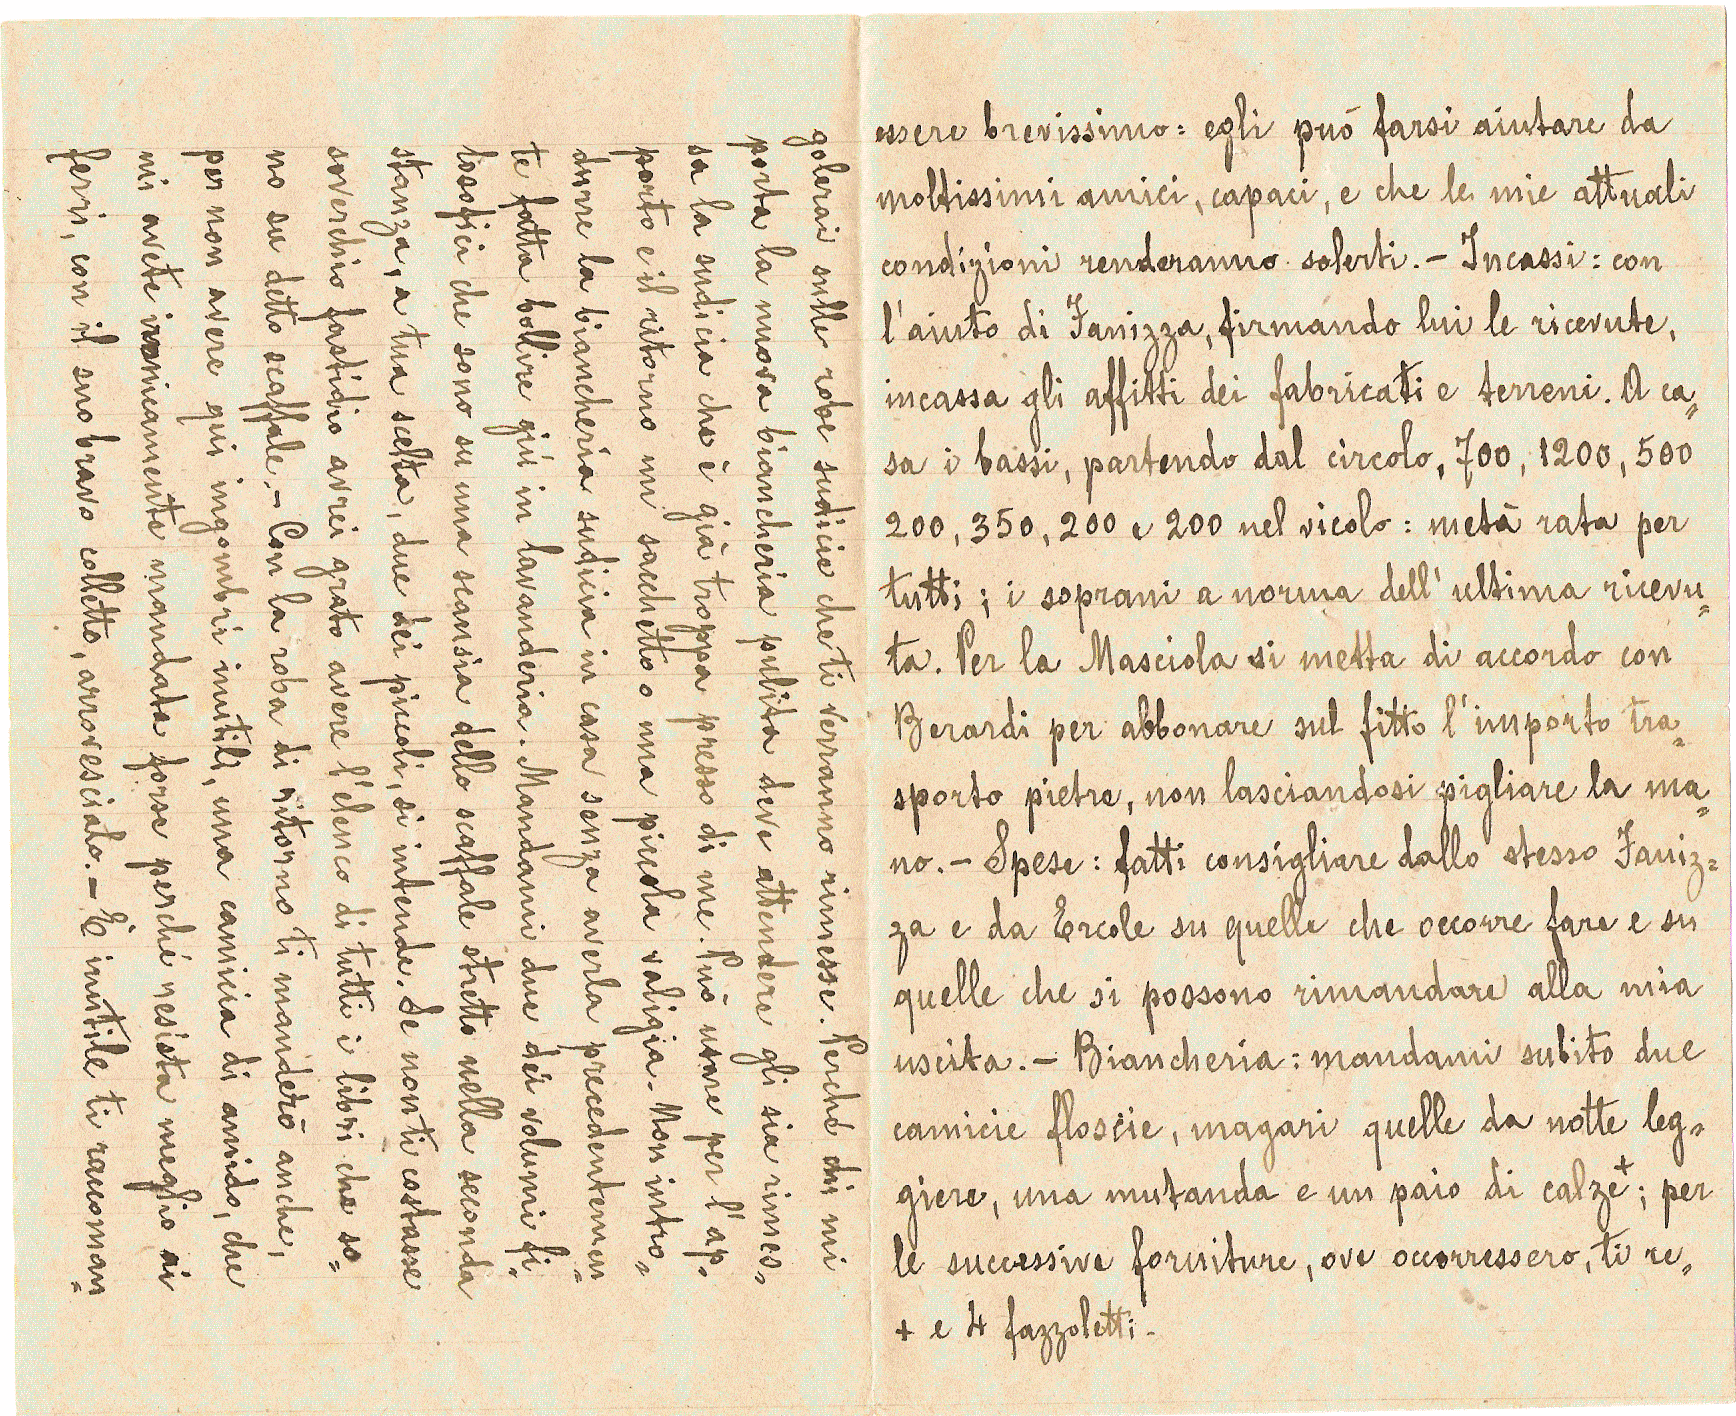 essere brevissimo: egli può farsi aiutare da
moltissimi amici, capaci, e che le mie attuali
condizioni renderanno solerti. – Incassi: con
l'aiuto di Fanizza, firmando lui le ricevute,
incassa gli affitti dei fabricati e terreni. A ca„
sa i bassi, partendo dal circolo, 700, 1200, 500
200, 350, 200 e 200 nel vicolo: metà rata per
tutti; i soprani a norma dell'ultima ricevu„
ta. Per la Masciola si metta di accordo con
Berardi per abbonare sul fitto l'importo tra„
sporto pietre, non lasciandosi pigliare la ma„
no. – Spese: fatti consigliare dallo stesso Faniz„
za e da Ercole su quelle che occorre fare e su
quelle che si possono rimandare alla mia
uscita. – Biancheria: mandami subito due
camicie floscie, magari quelle da notte leg„
giere, una mutanda e un paio di calze+; per
le successive forniture, ove occorressero, ti re„
+ e 4 fazzoletti –
golerai sulle robe sudicie che ti verranno rimesse. Perché chi mi
porta la nuova biancheria pulita deve attendere gli sia rimes„
sa la sudicia che è già troppa presso di me. Può usare per l'ap„
porto e il ritorno un sacchetto o una piccola valigia. Non intro„
durre la biancheria sudicia in casa senza averla precedentemen„
te fatta bollire giù in lavanderia. Mandami due dei volumi fi„
losofici che sono su una scansia dello scaffale stretto nella seconda
stanza, a tua scelta, due dei piccoli, si intende. Se non ti costasse
soverchio fastidio avrei grato avere l'elenco di tutti i libri che so„
no su detto scaffale. – Con la roba di ritorno ti manderò anche,
per non avere qui ingombri inutili, una camicia di amido, che
mi avete ironicamente mandata forse perché resista meglio ai
ferri, con il suo bravo colletto, arrovesciato. – È inutile ti raccoman„